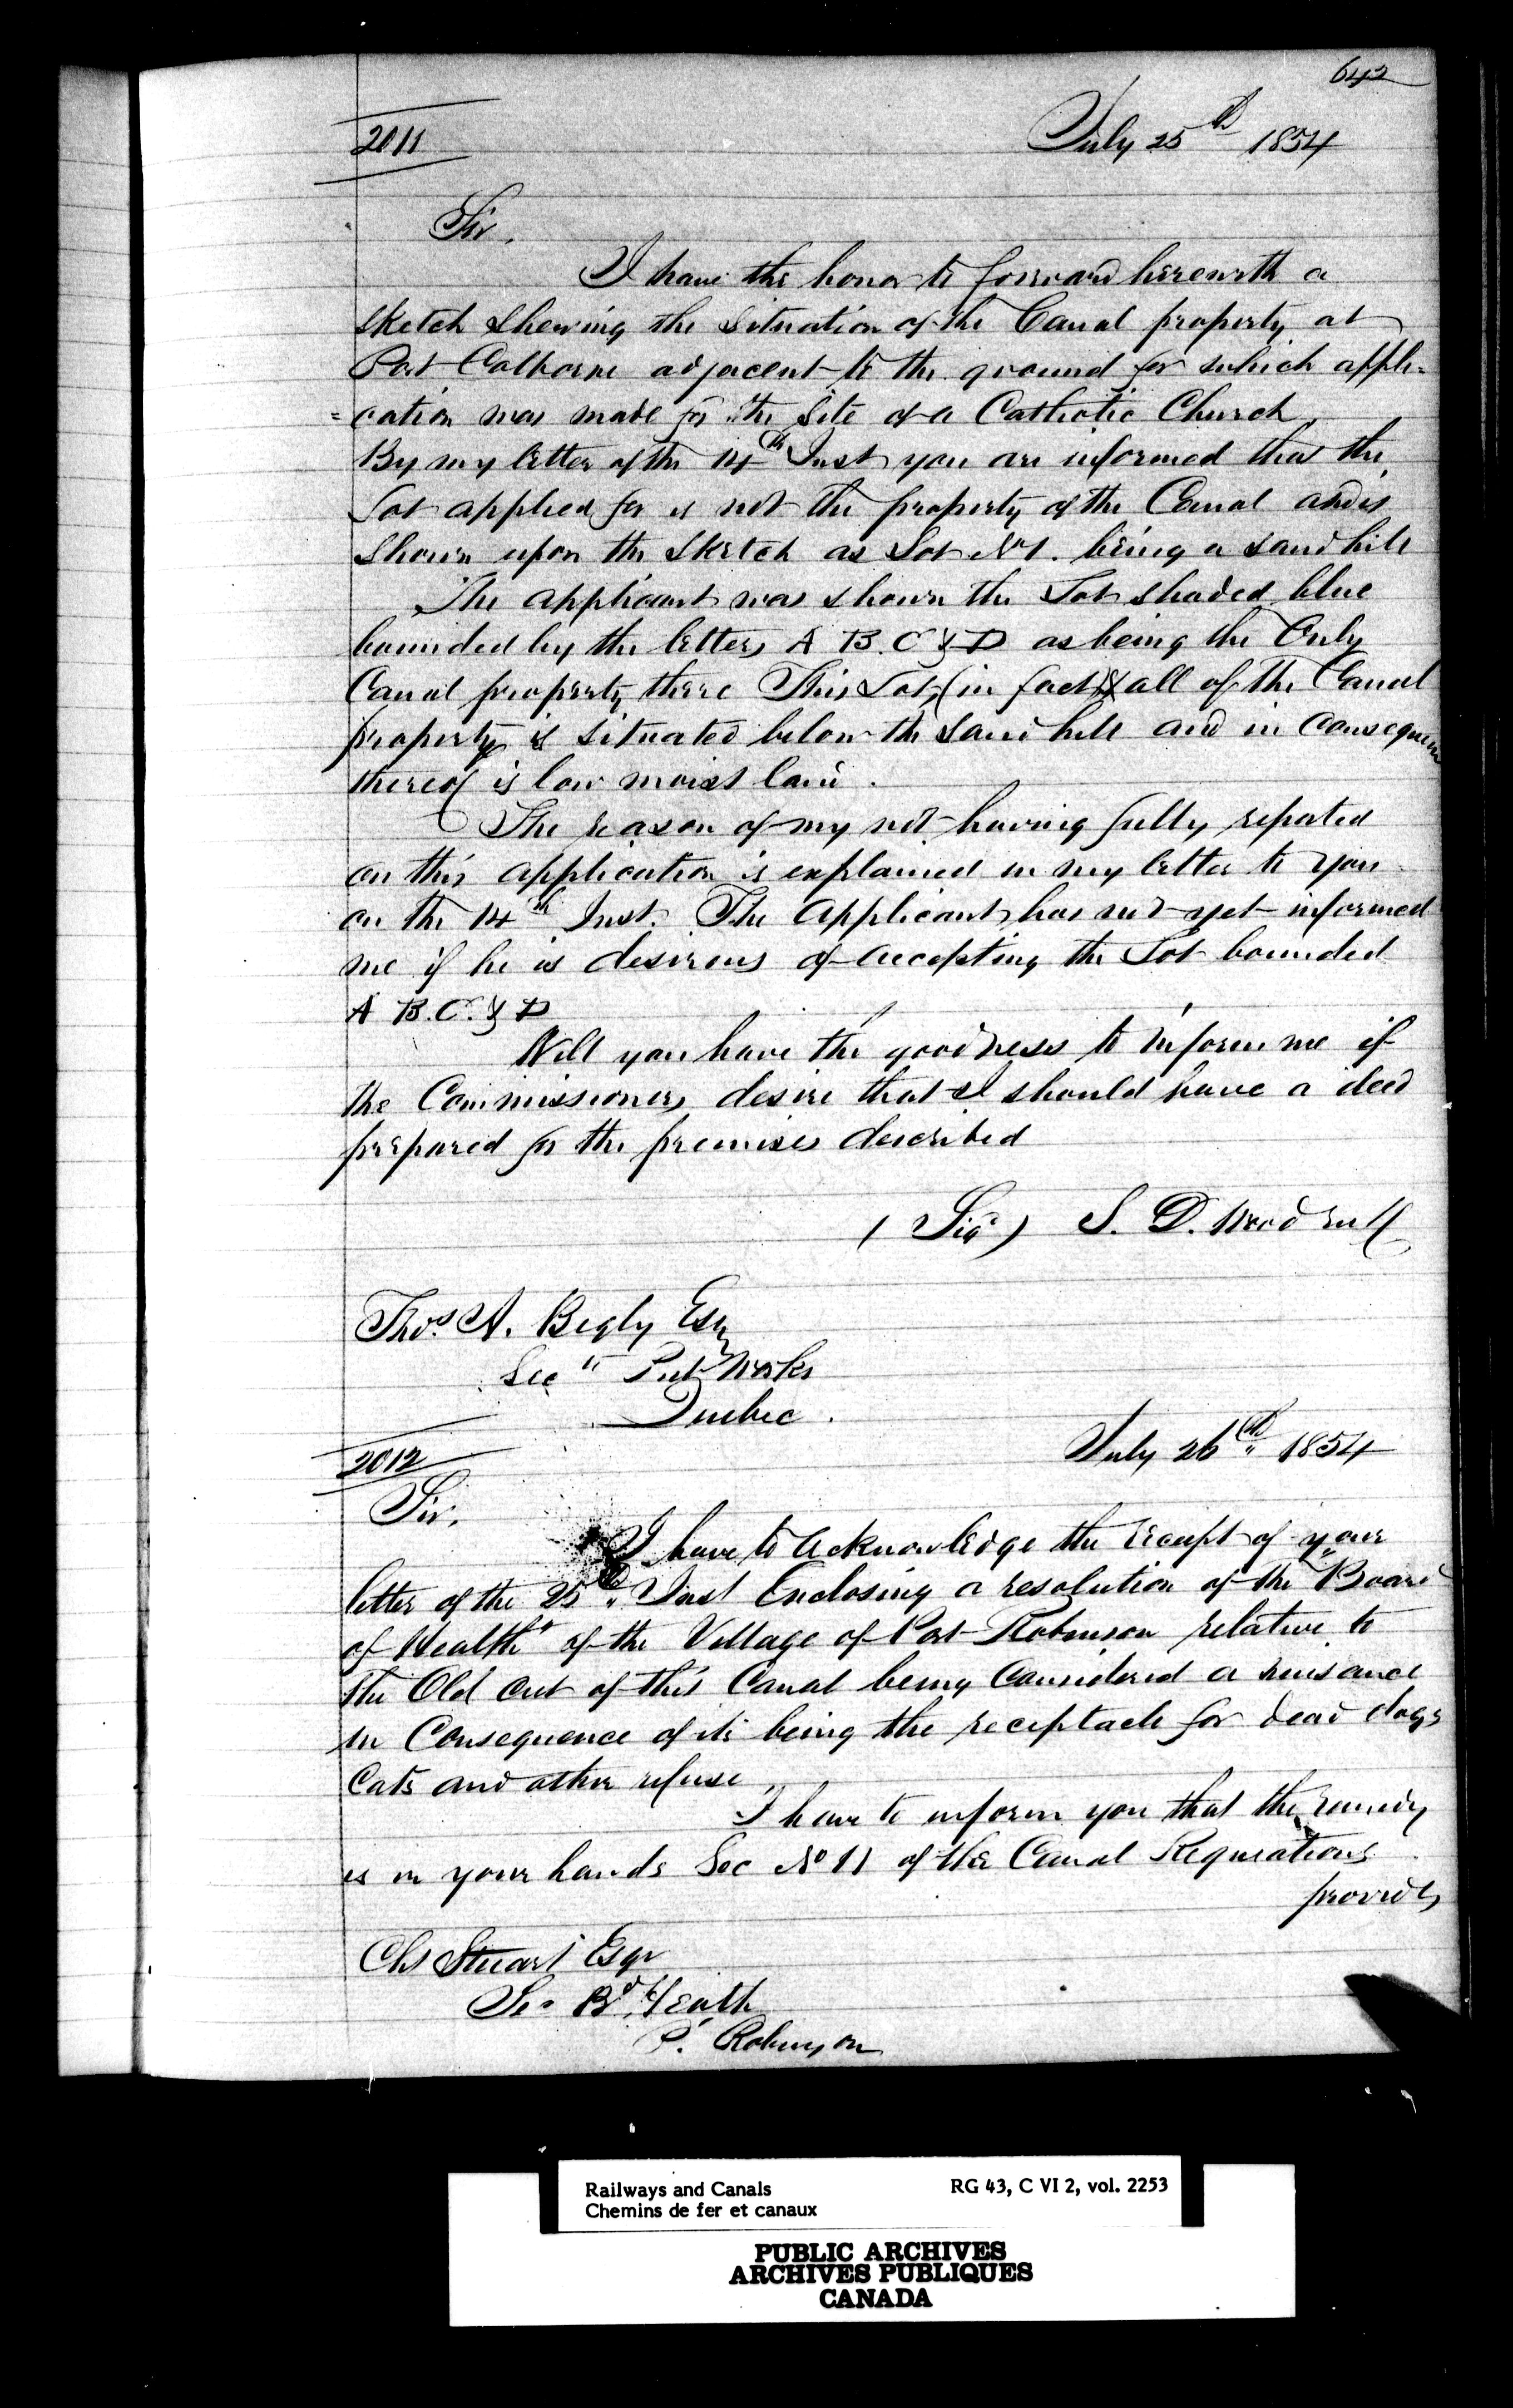 642
2011
July 25th 1854
Sir.
I have the honor to forward herewith a
sketch shewing the situation of the Canal property at
Port Colborne adjacent to the ground for which appli=
=cation was made for the Site of a Catholic Church
By my letter of the 14th Inst you are informed that the
Lot applied for is not the property of the Canal and is
Shown upon the Sketch as Lot No 1. being a sand hill
The applicant was shown the Lot shaded blue
bounded by the letters A B. C & D as being the Only
Canal property there This Lot, (in fact) all of the Canal
property is situated below the sand hill and in consequence
thereof is low moist land.
The reason of my not having fully reported
on this application is explained in my letter to you
on the 14th Inst. The Applicant has not yet informed
me if he is desirous of accepting the Lot bounded
A B. C. & D
Will you have the goodness to inform me if
the Commissioners desire that I should have a deed
prepared for the premises described
(Sigd) S. D. Woodruff
Thos. A. Begly Esqr
Sec " Pub Works
Quebec.
2012
July 26th " 1854
Sir.
I have to acknowledge the receipt of your
letter of the 25th " Inst Enclosing a resolution of the "Board
of Health" of the Village of Port Robinson relative to
the Old cut of this Canal being Considered a nuisance
in Consequence of its being the receptacle for dead dogs
Cats and other refuse
I have to inform you that the remedy
is in your hands Sec No 11 of the Canal Regulations
provides
Chs Stuart Esqr
Sec Bd Health
P. Robinson
Railways and Canals
Chemins de fer et canaux
RG 43, C VI 2, vol. 2253
PUBLIC ARCHIVES
ARCHIVES PUBLIQUES
CANADA